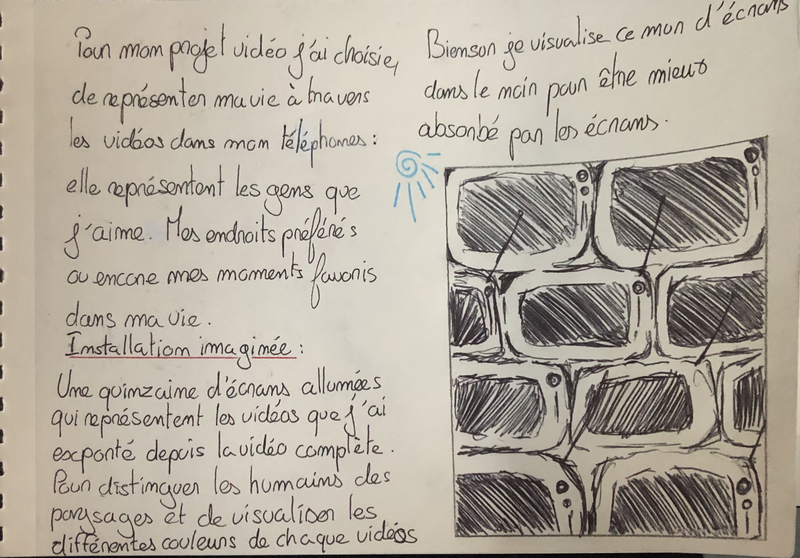 Pour mon projet vidéo j'ai choisie,
de représenter ma vie à travers
les vidéos dans mon téléphones :
elle représentent les gens que
j'aime. Mes endroits préférés
ou encore mes moments favoris
dans ma vie.
Installation imaginée :
Une quinzaine d'écrans allumées
qui représentent les vidéos que j'ai
exporté depuis la vidéo complète.
Pour distinguer les humains des
paysages et de visualiser les
différentes couleurs de chaque vidéos
Biensur je visualise ce mur d'écrans
dans le noir pour être mieux
absorbé par les écrans.